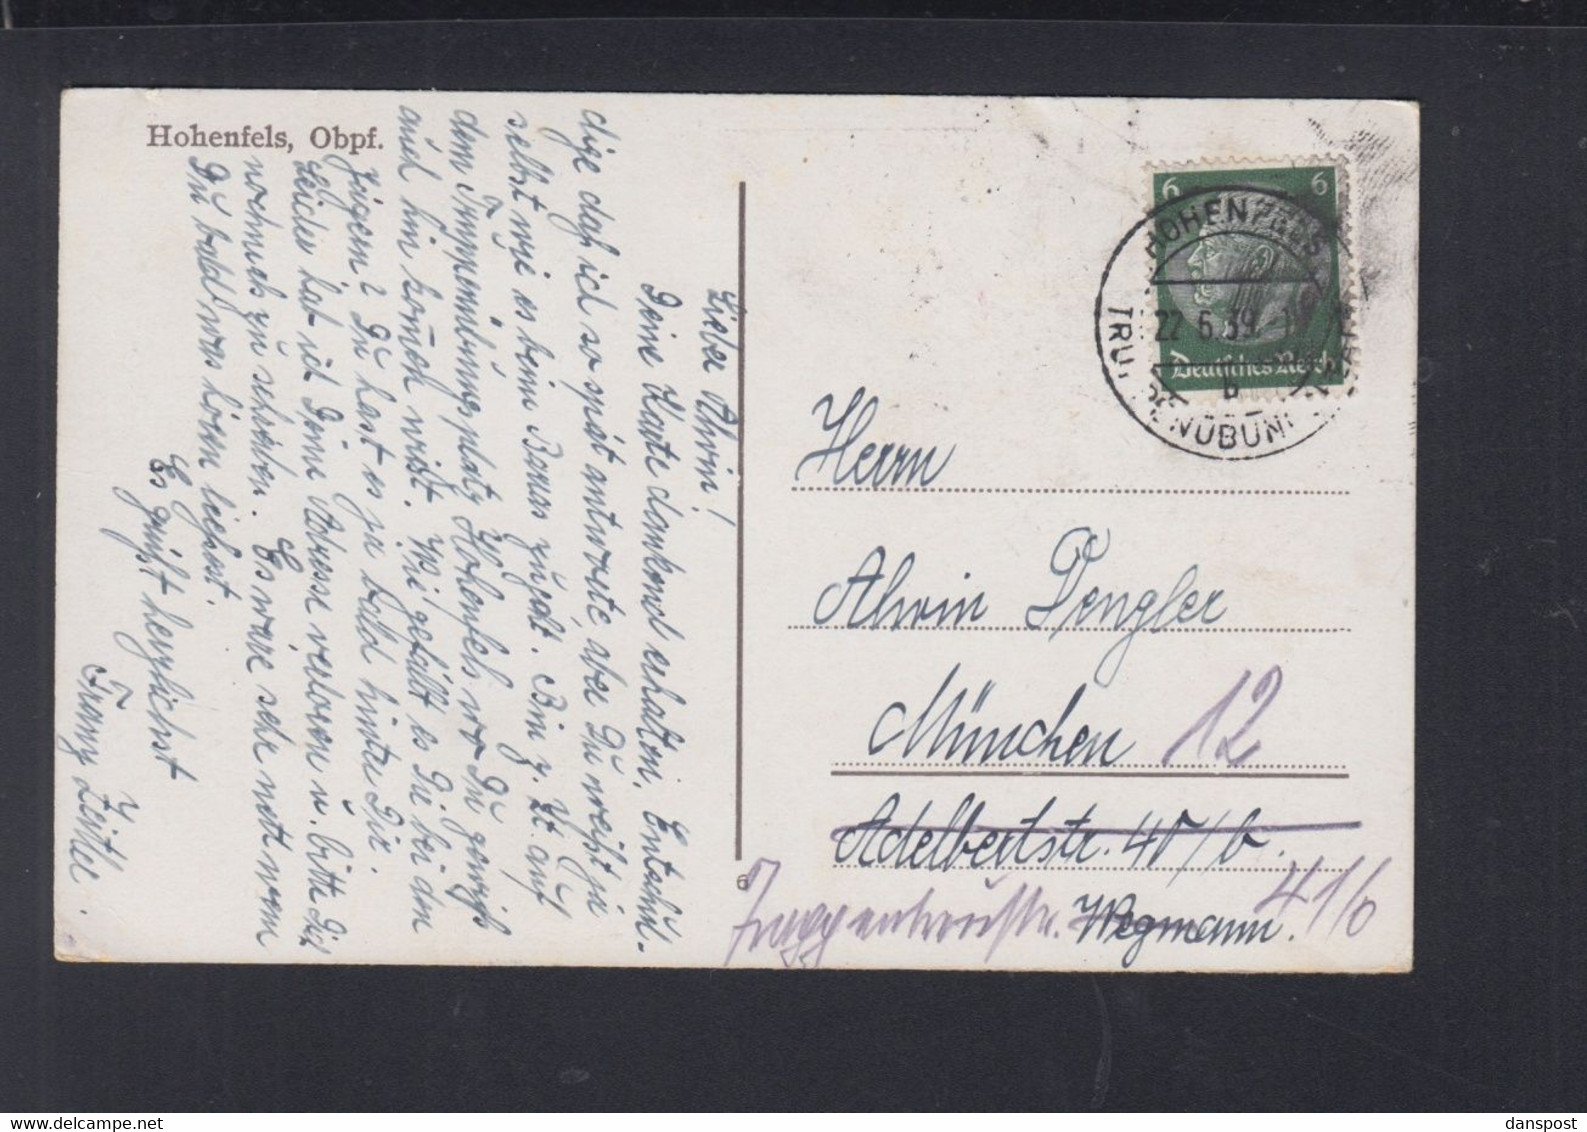 Hohenfels, Obpf.
Lieber Alwin!
Deine Karte dankend erhalten. Entschul-
dige daß ich so spät antworte aber Du weißt ja
selbst wie es beim Barras zugeht. Bin z. Zt. auf
dem Truppenübungsplatz Hohenfels wo Du gewiß
auch hin kommen wirst. Wie gefällt es Dir bei den
Jägern? Du hast es ja bald hinter Dir.
Leider hab ich Deine Adresse verloren u. bitte Dich
nochmals zu schreiben. Es wäre sehr nett wenn
Du bald was hören ließest.
Es grüßt herzlichst
Franz Zeitler.
6
6 6
HOHENFELS
22.6.39
b
TRUPPENÜBUN
Deutsches Reich
Herrn
Alwin Dengler
München 12
Adelbertstr. 40/b.
Wegmann. 41/0
6
danspost delcampe.net danspost